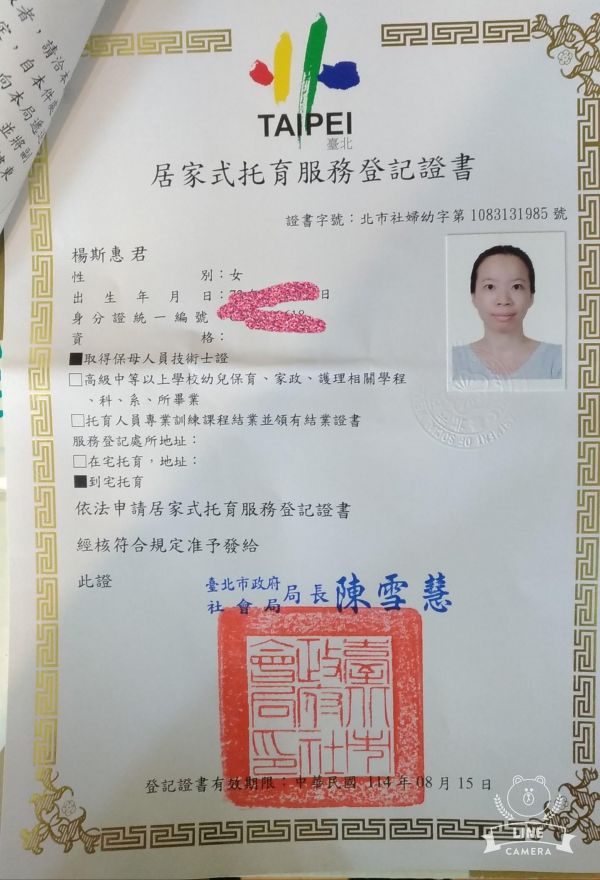 TAIPEI
臺北
居家式托育服務登記證書
證書字號：北市社婦幼字第1083131985號
楊斯惠 君
性別：女
出生年月日：日
身分證統一編號
資格：
■取得保母人員技術士證
□高級中等以上學校幼兒保育、家政、護理相關學程
、科、系、所畢業
□托育人員專業訓練課程結業並領有結業證書
服務登記處所地址：
□在宅托育，地址：
■到宅托育
依法申請居家式托育服務登記證書
經核符合規定准予發給
此證
臺北市政府
社會局
局長 陳雪慧
臺北市政府社會局印
登記證書有效期限：中華民國 114 年 08 月 15 日
LINE
CAMERA